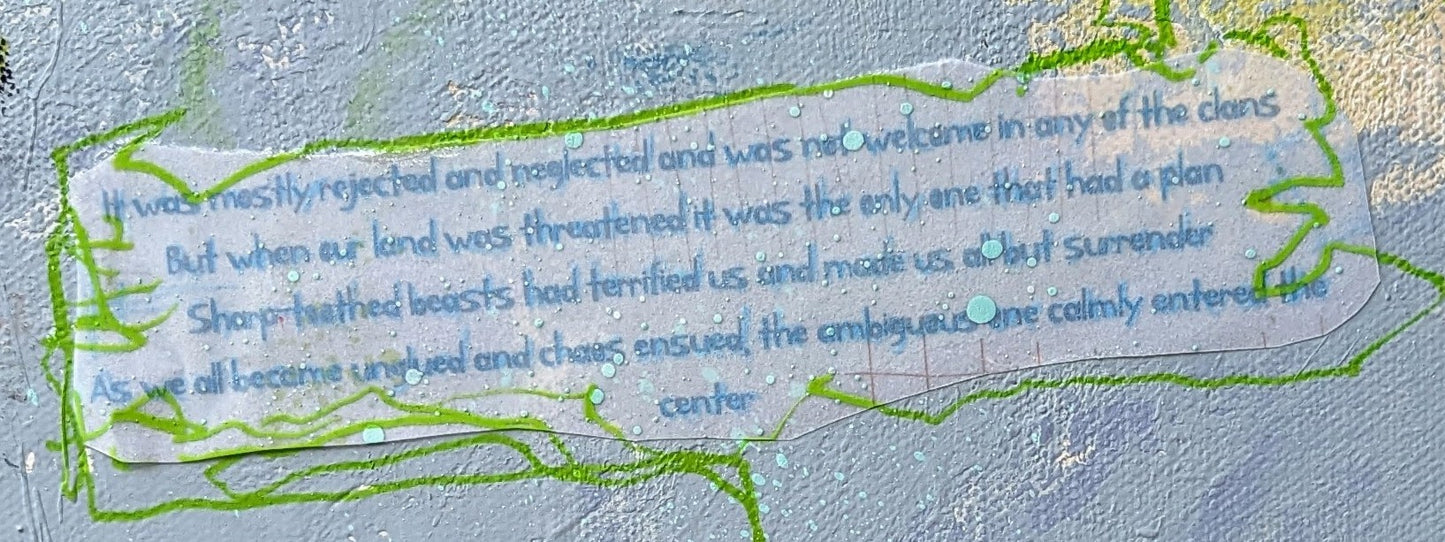 It was mostly rejected and neglected and was not welcome in any of the clans
But when our land was threatened it was the only one that had a plan
Sharp-toothed beasts had terrified us and made us all but surrender
As we all became unglued and chaos ensued, the ambiguous one calmly entered the
center